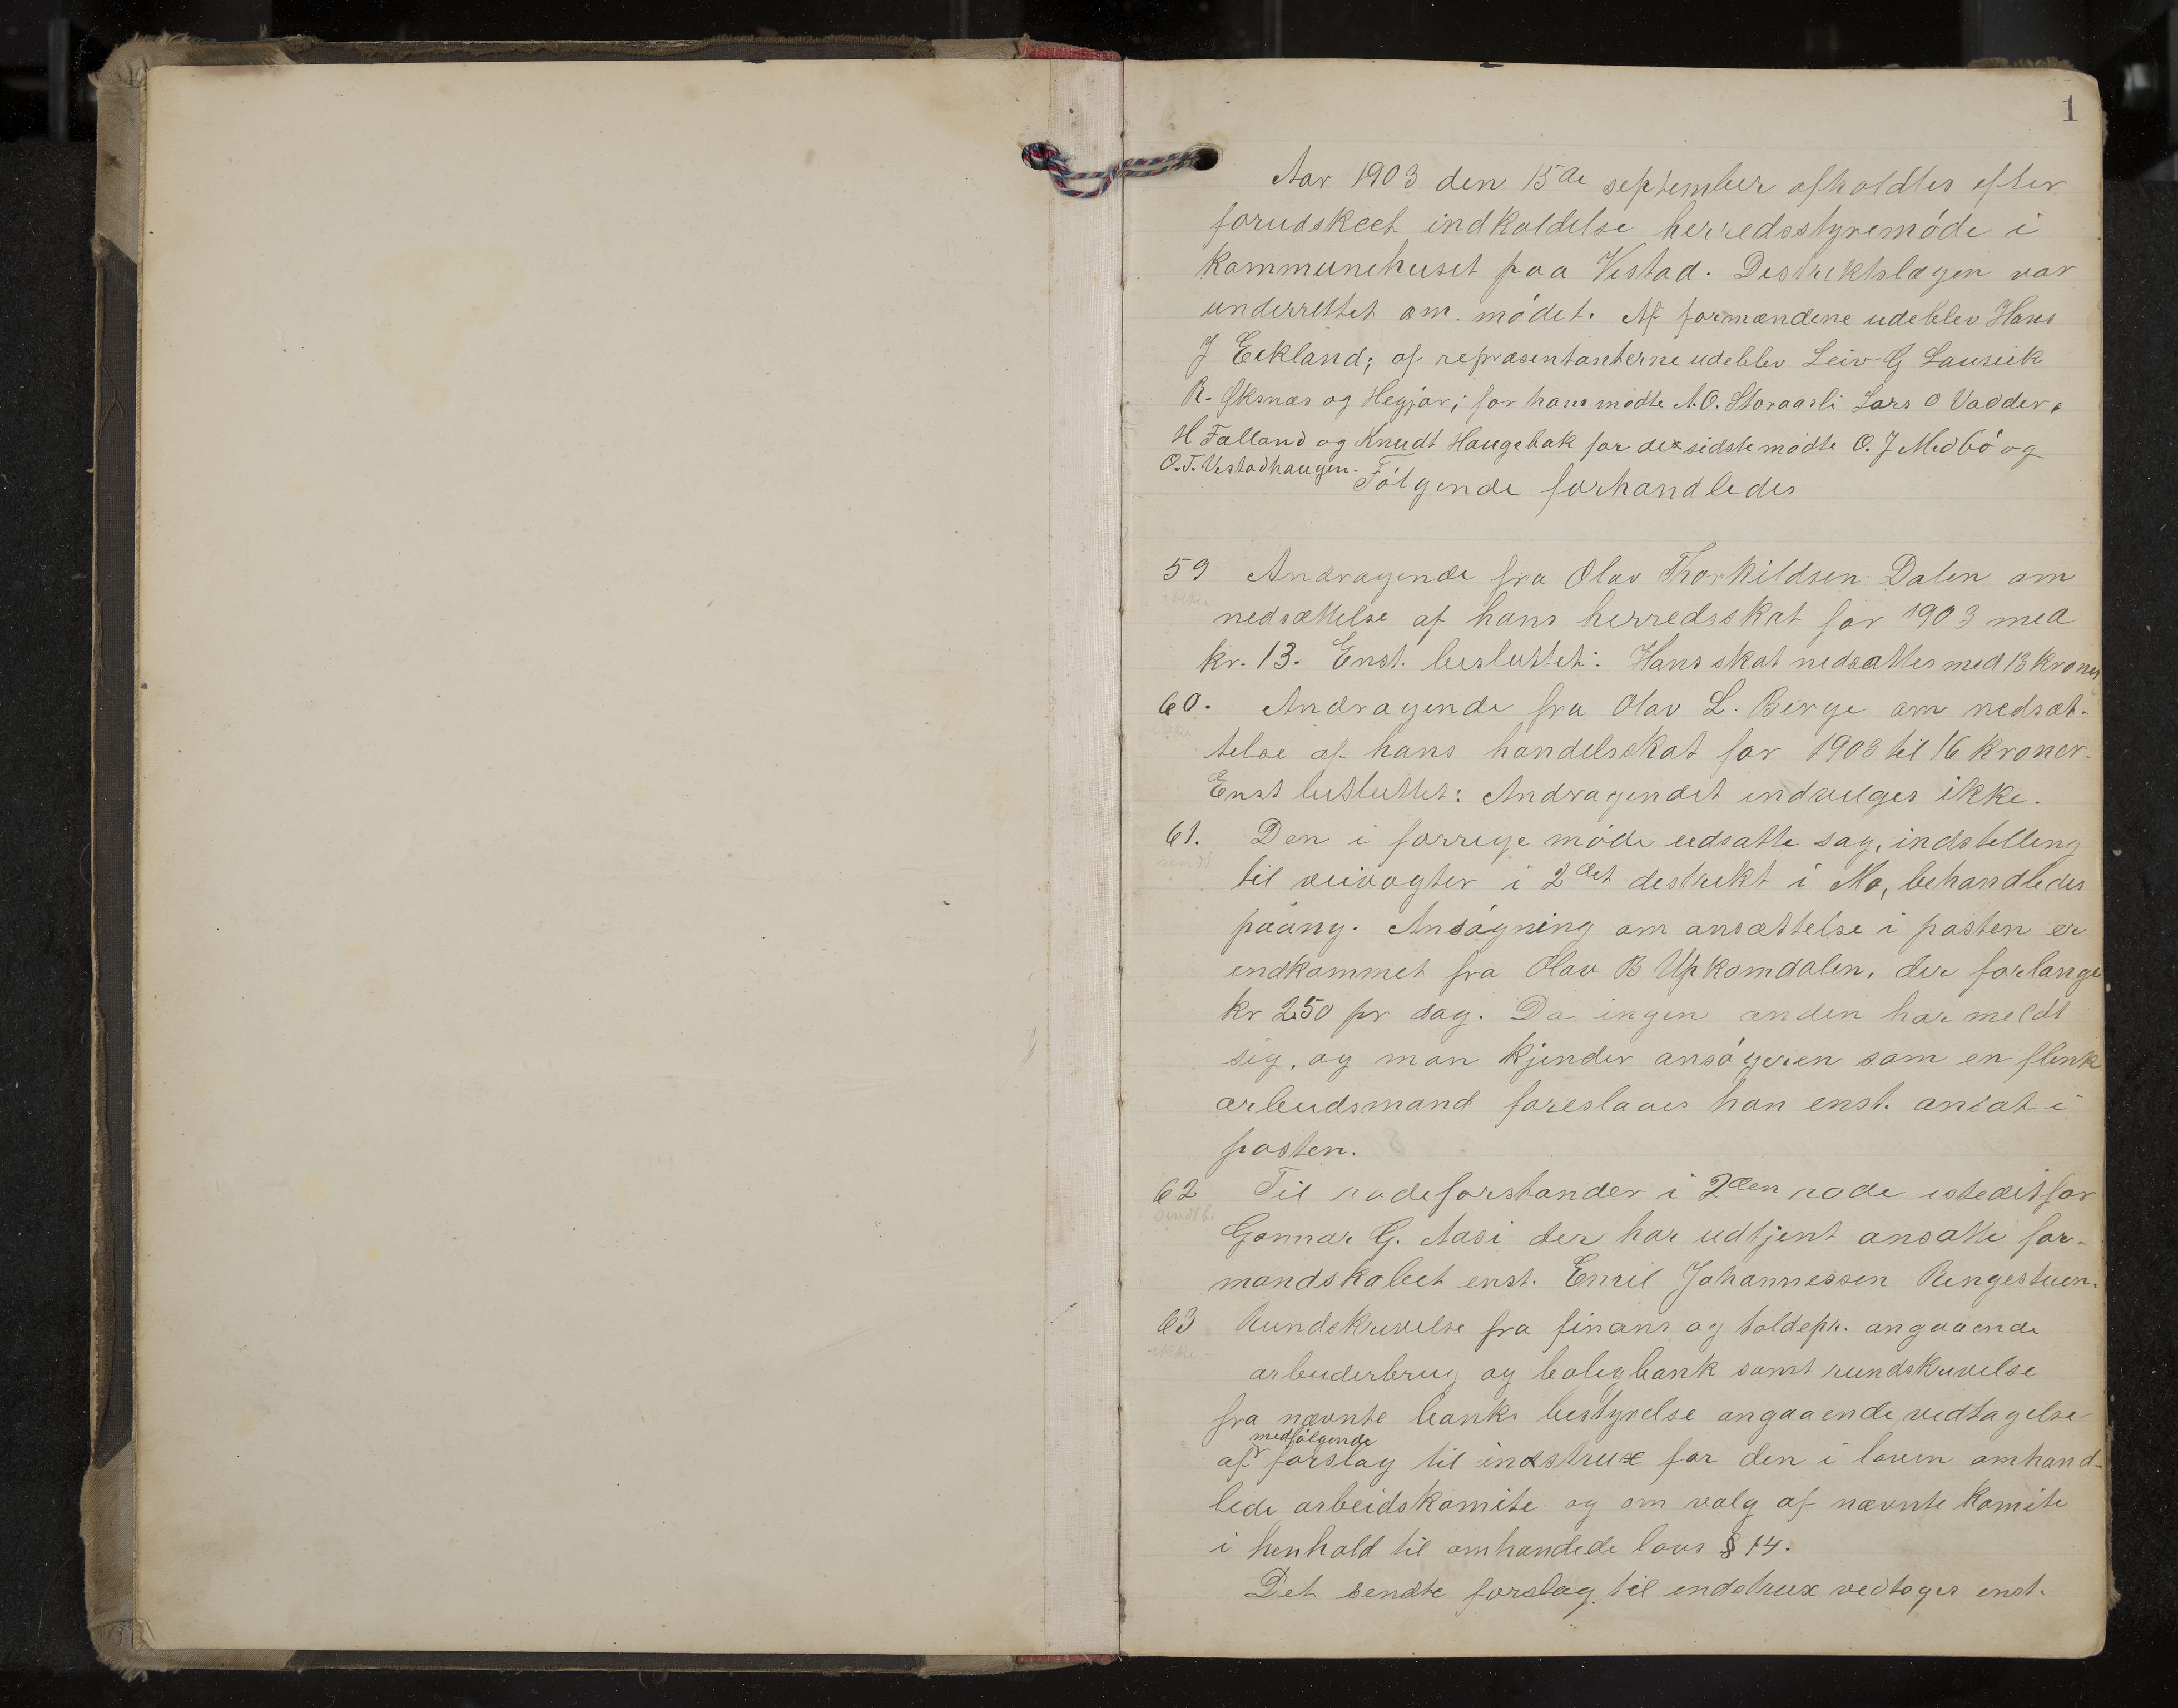 1
Aar 1903 den 15de september afholdtes efter
forudskeet indkaldelse herredsstyremøde i
kommunehuset paa Vistad. Distriktslægen var
underrettet om mødet. Af formændene udeblev Hans
J Eekland; af repræsentanterne udeblev Leiv G Lauseik
R. Øksnæs og Hegjar; for ham mødte A. O. Storaasli Lars O Vadder,
H Fælland og Knudt Haugebak for de sidste mødte O. J Medbø og
O. T. Vistadhaugen.
Følgende forhandledes
59 Andragende fra Olav Thorkildsen Dalen om
ikke
nedsættelse af hans herredsskat for 1903 med
kr. 13. Enst. besluttet: Hans skat nedsættes med 13 kroner
60. Andragende fra Olav L. Berge om nedsæt-
ikke
telse af hans handelsskat for 1903 til 16 kroner.
Enst besluttet: Andragendet indvilges ikke.
61. Den i forrige møde udsatte sag, indstilling
sendt
til veivogter i 2det distrikt i Mo, behandledes
paany. Ansøgning om ansættelse i posten er
indkommet fra Olav B Upkomdalen, der forlanger
kr 2.50 pr dag. Da ingen anden har meldt
sig, og man kjender ansøgeren som en flink
arbeidsmand foreslaaes han enst. ansat i
posten.
62 Til rodeforstander i 2den rode istedetfor
sendt
Gunnar G. Aasi der har udtjent ansatte for-
mandskabet enst. Emil Johannessen Ringestuen.
63 Rundskrivelse fra finans og toldepr. angaaende
ikke
arbeiderbrug og boligbank samt rundskrivelse
fra nævnte banks bestyrelse angaaende vedtagelse
medfølgende
af forslag til instrux for den i loven omhand-
lede arbeidskomite og om valg af nævnte komite
i henhold til omhandlede lovs § 14.
Det sendte forslag til indstrux vedtoges enst.